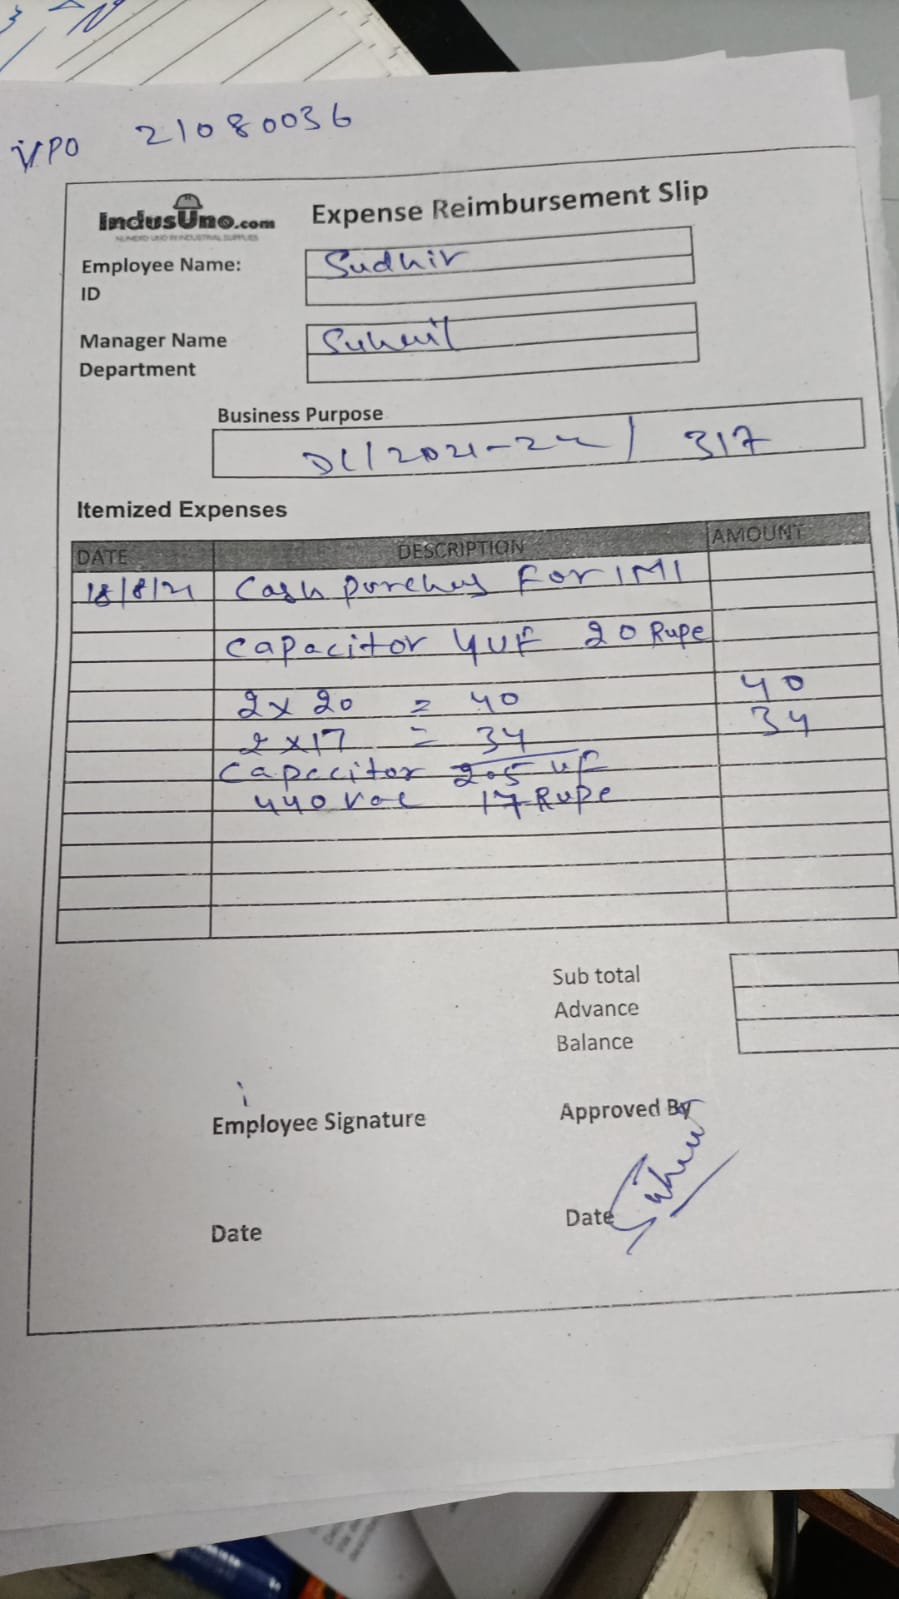 VPO 21080036
IndusUno.com Expense Reimbursement Slip
NUMERO UNO IN INDUSTRIAL SUPPLIES
Employee Name: Sudhir
ID
Manager Name Suheil
Department
Business Purpose
DL/2021-22/ 317
Itemized Expenses
DATE DESCRIPTION AMOUNT
18/8/21 Cash porches For IMI
Capacitor 4UF 20 Rupe
2 x 20 = 40 40
2 x 17 = 34 34
Capacitor 2.5 uf
440 vac 17 Rupe
Sub total
Advance
Balance
Employee Signature Approved By
Date Date